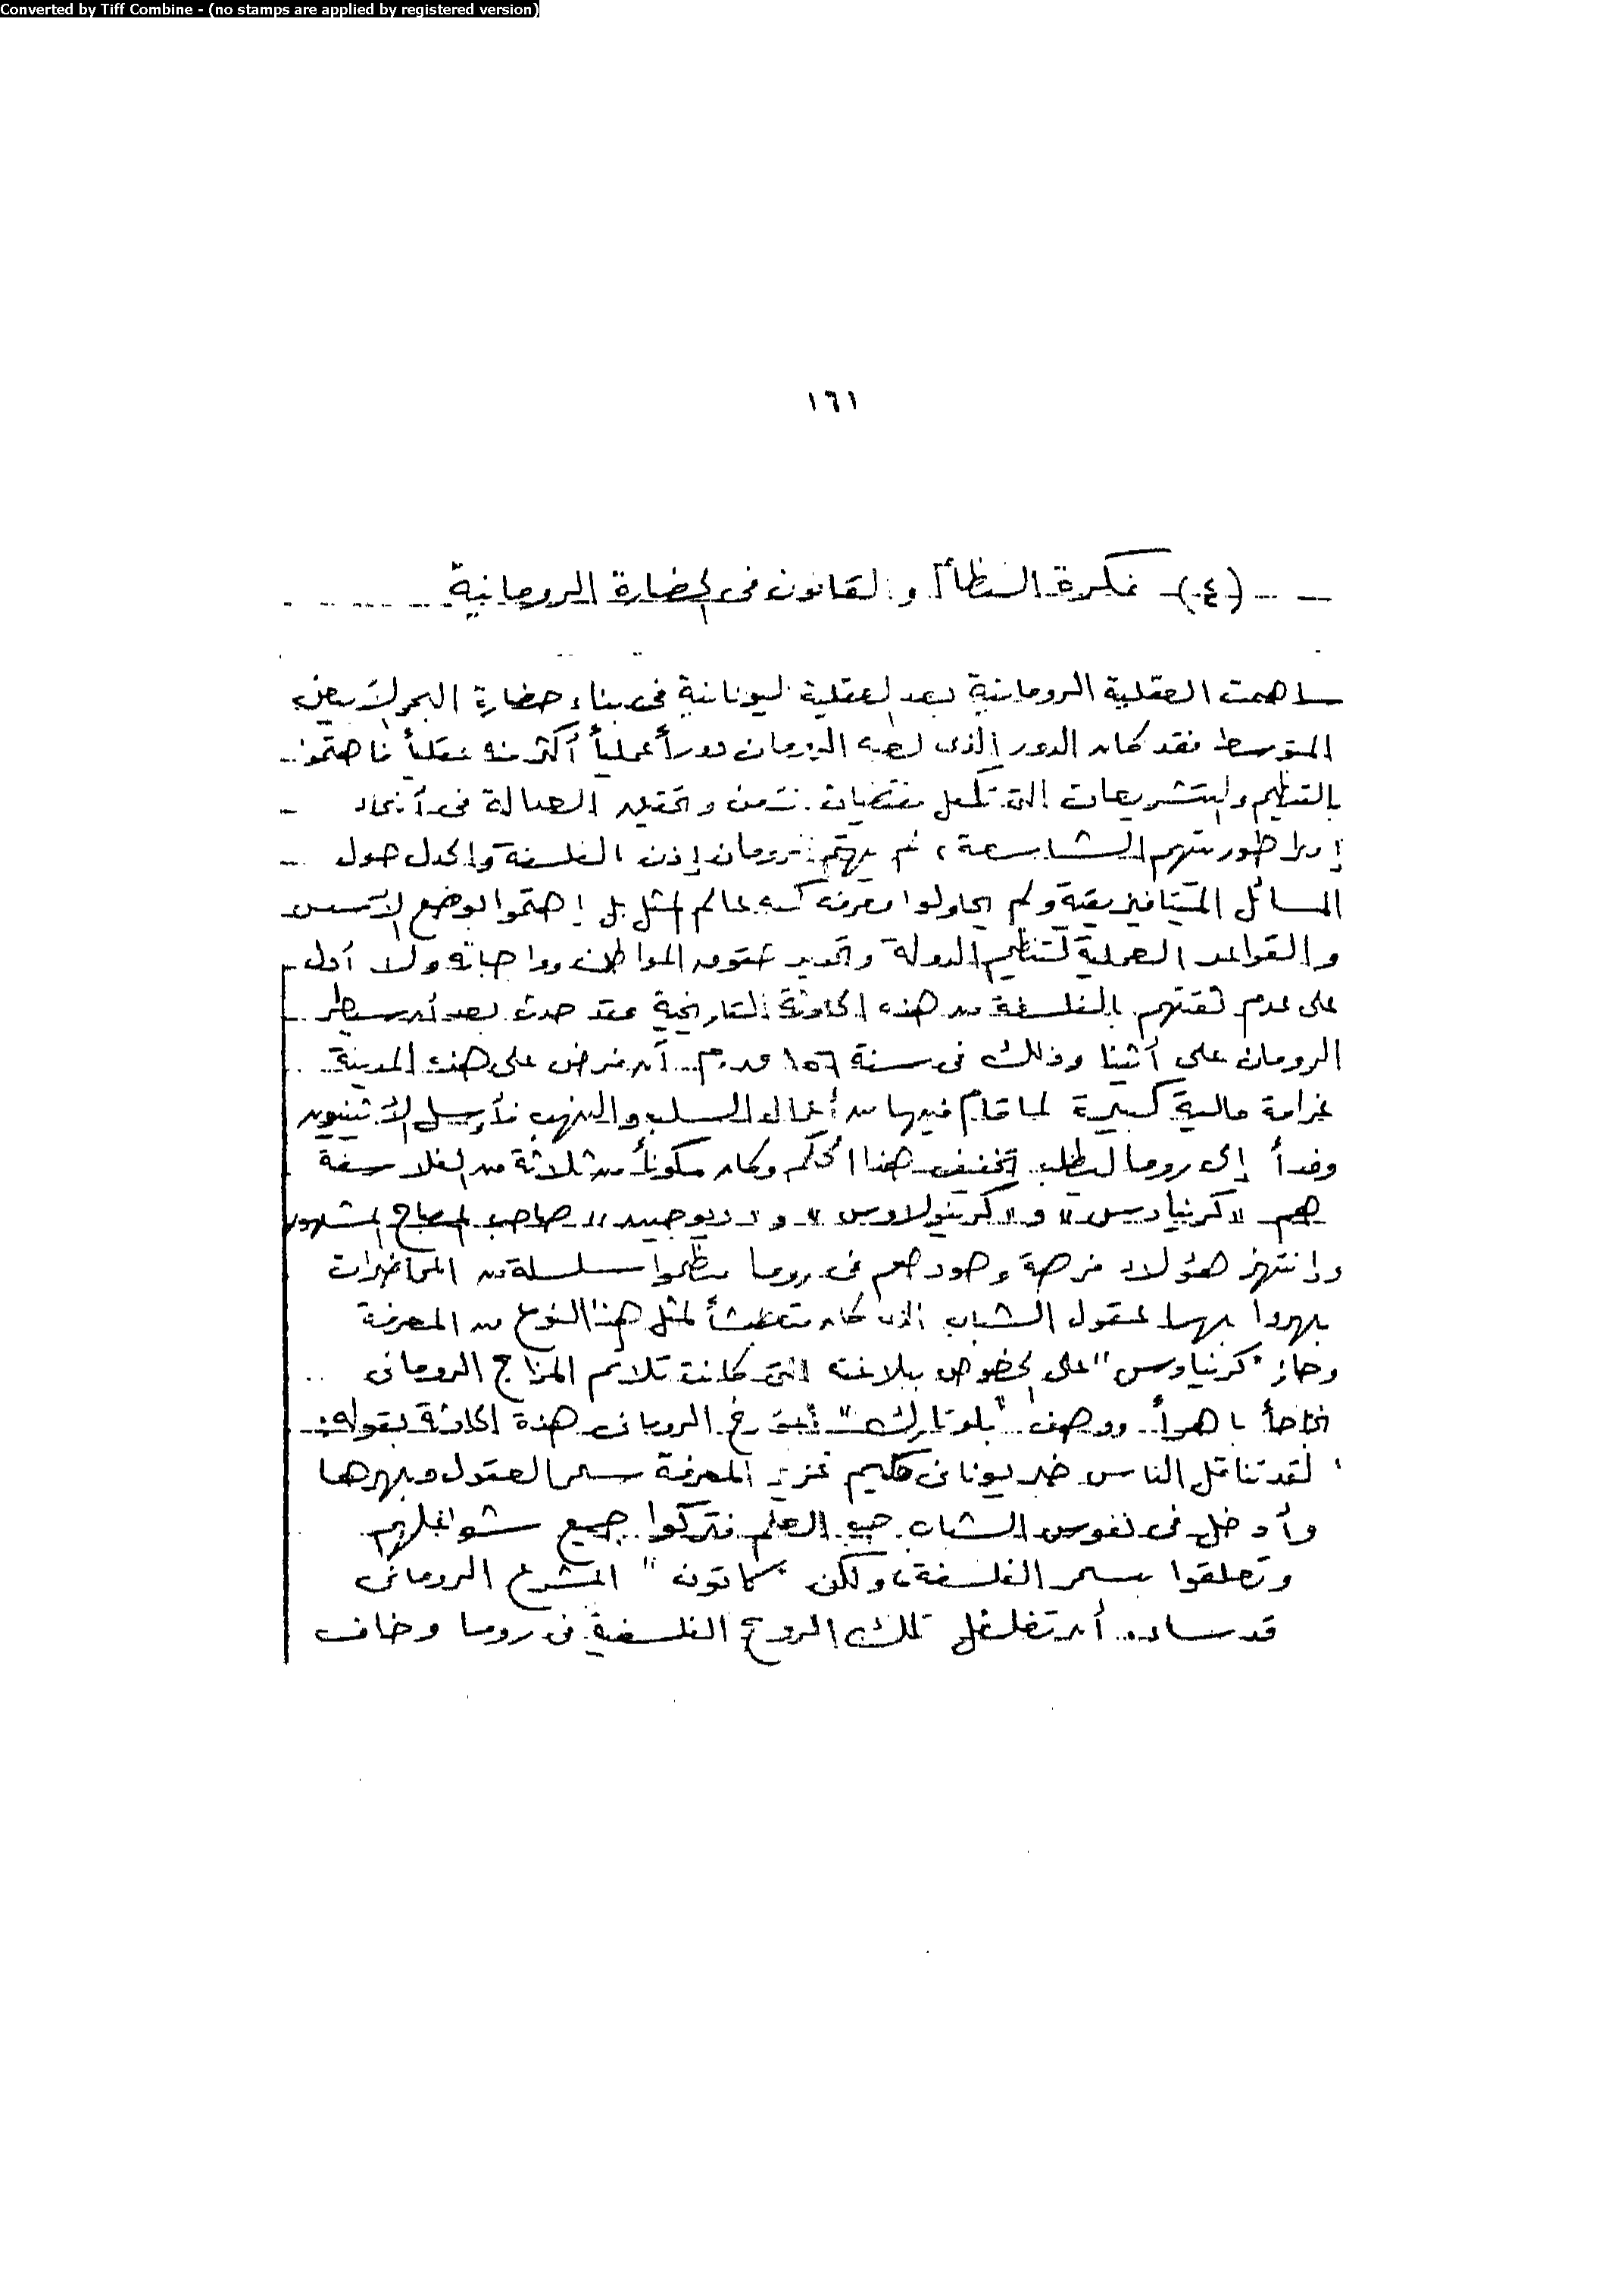 Converted by Tiff Combine - (no stamps are applied by registered version)
١٦١
(٤) فكرة النظام والقانون فى الحضارة الرومانية
ساهمت العقلية الرومانية بعد العقلية اليونانية فى بناء حضارة البحر الأبيض
المتوسط فقد كان الدور الذى لعبه الرومان دوراً عملياً أكثر منه عقلياً فاهتموا
بالتنظيم والتشريعات التى تكفل مقتضيات وتحقيق العدالة فى أنحاء
إمبراطوريتهم الشاسعة، لم يهتم الرومان إذن الفلسفة والجدل حول
المسائل الميتافيزيقية ولم يحاولوا معرفة كنه عالم المثل بل إهتموا بوضع الأسس
والقواعد العملية لتنظيم الدولة وتحديد حقوق المواطن وواجباته ولا أدل
على عدم ثقتهم بالفلسفة من هذه الحادثة التاريخية فقد حدث بعد أن سيطر
الرومان على أثينا وذلك فى سنة ١٥٦ ق.م. أن فرض على هذه المدينة
غرامة مالية كبيرة لما قام فيها من أعمال السلب والنهب فأرسل الأثينيون
وفداً إلى روما لطلب تخفيف هذا الحكم وكان مكوناً من ثلاثة من الفلاسفة
هم «كرنيادس» و«كريتولاوس» و«ديوجين» صاحب المصباح المشهور
وانتهز هؤلاء فرصة وجودهم فى روما فنظموا سلسلة من المحاضرات
بهروا بها عقول الشباب الذى كان متعطشاً لمثل هذا النوع من المعرفة
وحاز "كرنيادس" على الخصوص ببلاغته التى كانت تلائم المزاج الرومانى
نجاحاً باهراً ووصف "بلوتارك" المؤرخ الرومانى هذه الحادثة بقوله:
لقد تناقل الناس خبر يونانى حكيم غزير المعرفة سحر العقول وبهرها
وأدخل فى نفوس الشباب حب العلم فتركوا جميع شواغلهم
وتعلقوا بسحر الفلسفة، ولكن "كاتون" المشرع الرومانى
قد ساءه أن تغلغل تلك الروح الفلسفية فى روما وخاف